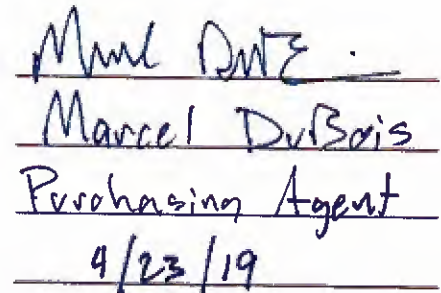 Marcel DuBois
Purchasing Agent
4/23/19